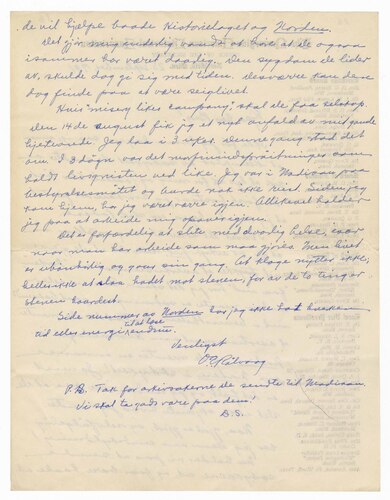 de vil hjelpe baade Historielaget og Norden.
Det gjør mig inderlig vondt at høre at De ogsaa
i sommer har været daarlig. Den sygdom De lider
av, skulde dog gi sig med tiden. Desværre kan den
dog finde paa at være seiglivet.
Hvis "misery likes company" skal De faa selskap.
Den 14de august fik jeg et nyt anfald av mit gamle
hjerteonde. Jeg laa i 3 uker denne gang stod det
om. I 3 døgn var det morfinindsprøitninger som
holdt livsgnisten ved like. Jeg var i Madison paa
bestyrelsesmøtet og burde nok ikke reist. Siden jeg
kom hjem, har jeg været værre igjen. Allikevel holder
jeg paa at arbeide mig opover igjen.
Det er forfærdelig at slite med daarlig helse, især
naar man har arbeide som maa gjøres. Men livet
er ubønhørlig og gaar sin gang. At klage nytter ikke,
heller ikke at slaa hodet mot stenen, for av de to ting er
stenen haardest.
Siste nummer av Norden har jeg ikke hat hverken
tid eller energi til at læse endnu.
Venligst
P.S. Tak for arkivsakerne De sendte til Madison.
Vi skal ta godt vare paa dem!
D.S.